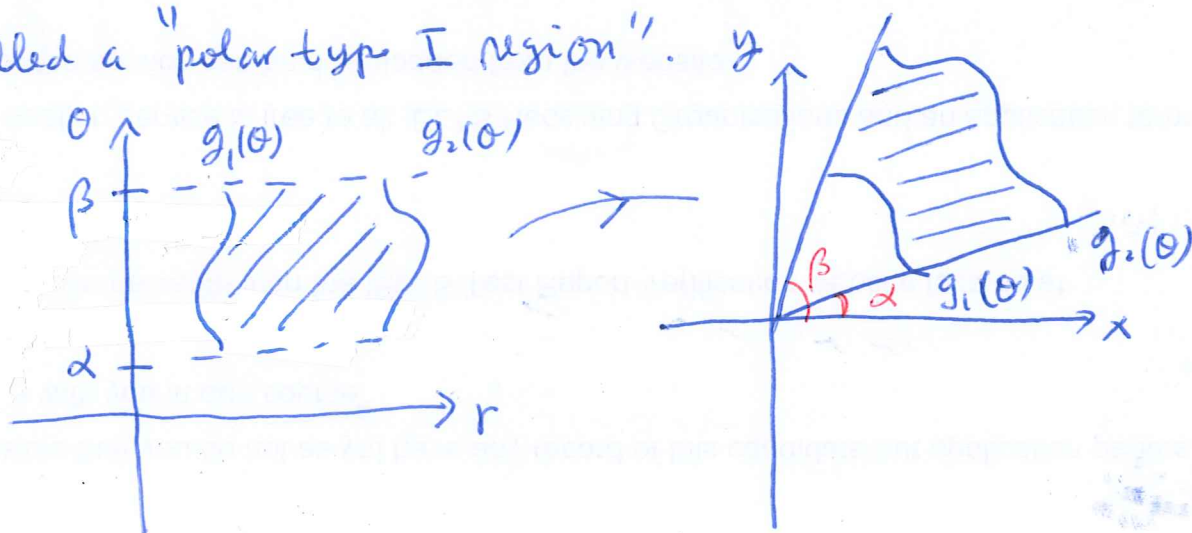 lled a "polar type I region".
y
θ
g₁(θ)
g₂(θ)
β
α
r
β
α
g₁(θ)
g₂(θ)
x